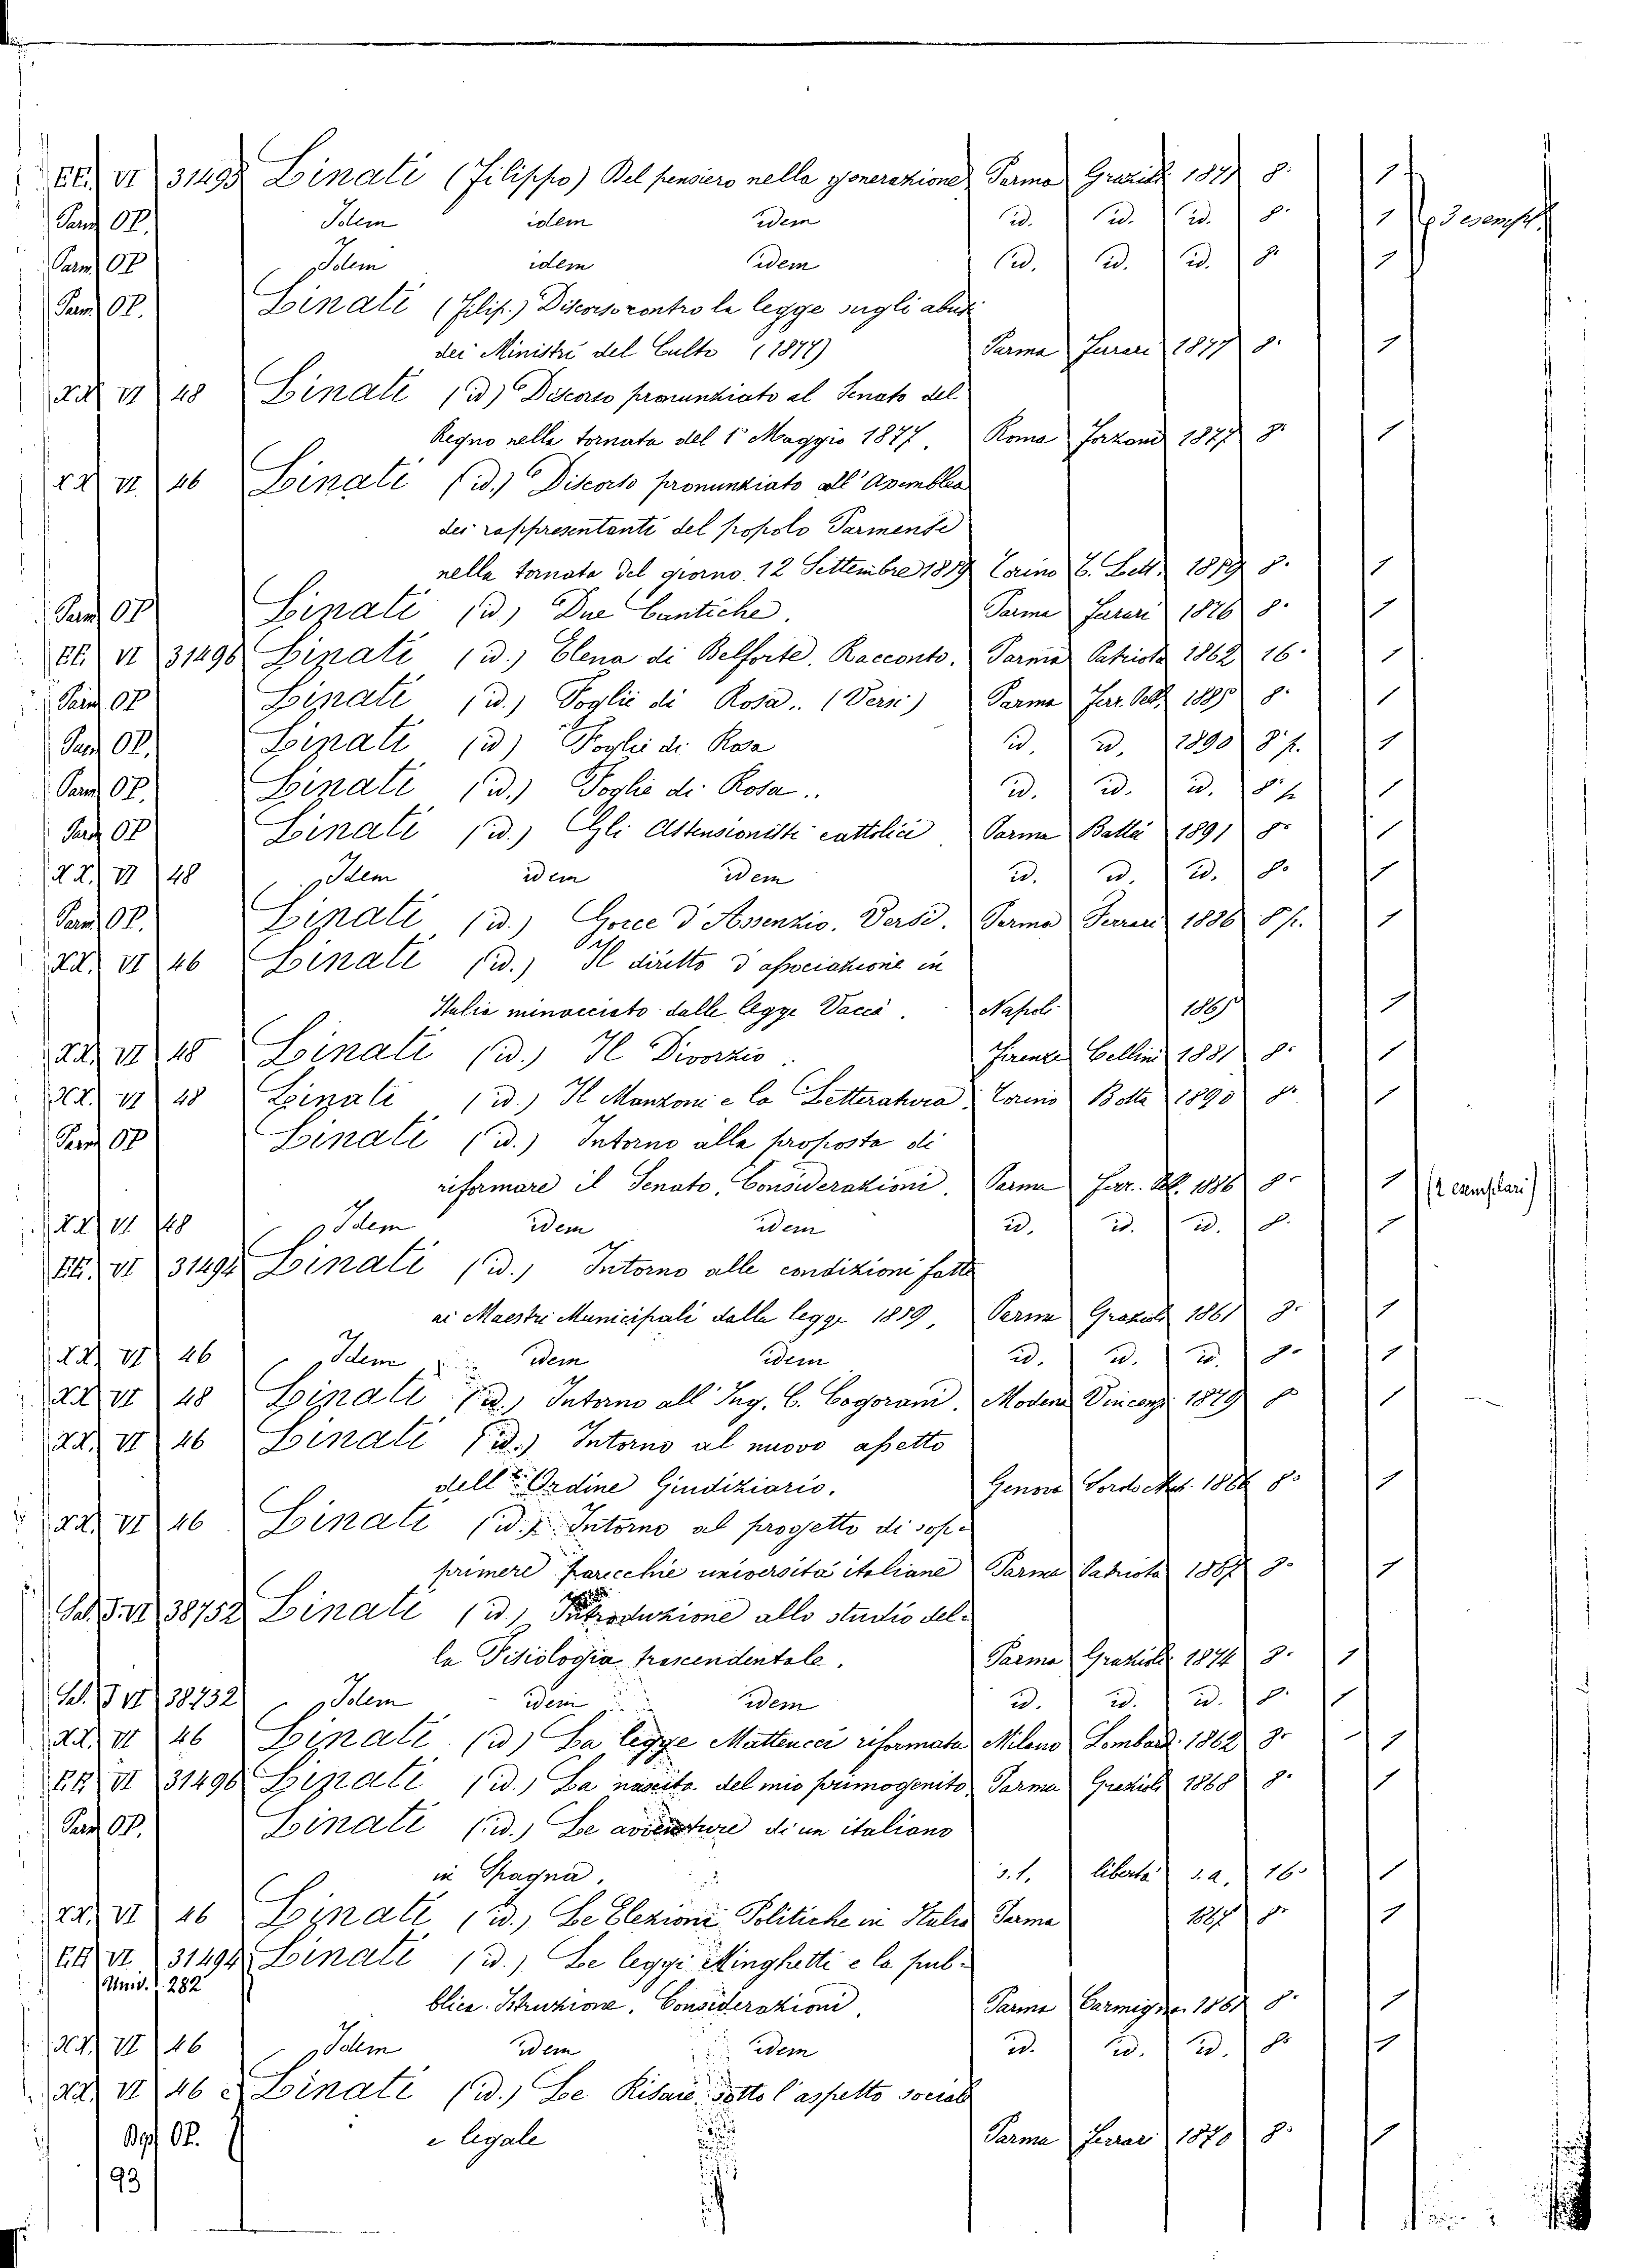 VI 31495 Linati (Filippo) Del pensiero nella generazione Parma Grazioli 1871 8°
Parm OP. Idem idem idem id. id. id. 8° 1
Parm. OP Idem idem idem id. id. id. 8° 1
Parm. OP. Linati (Filip.) Discorso contro la legge sugli abusi
dei Ministri del Culto (1877) Parma Ferrari 1877 8° 1
VI 48 Linati (id) Discorso pronunziato al Senato del
Regno nella tornata del 1° Maggio 1877. Roma Forzani 1877 8° 1
VI 46 Linati (id.) Discorso pronunziato all'Assemblea
dei rappresentanti del popolo Parmense
nella tornata del giorno 12 Settembre 1859 Torino 1859 8° 1
Parm OP Linati (id) Due Cantiche. Parma Ferrari 1876 8° 1
VI 31496 Linati (id.) Elena di Belforte. Racconto. Parma Patriota 1862 16° 1
Parm OP Linati (id.) Foglie di Rosa.. (Versi) Parma Ferr. 8° 1
Parm OP. Linati (id) Foglie di Rosa id. id. 1890 8° p. 1
Parm OP. Linati (id.) Foglie di Rosa.. id. id. id. 8° p. 1
Parm OP Linati (id.) Gli Astensionisti cattolici Parma Battei 1891 8° 1
VI 48 Idem idem idem id. id. id. 8° 1
Parm OP. Linati (id.) Gocce d'Assenzio. Versi. Parma Ferrari 1886 8° p. 1
VI 46 Linati (id.) Il diritto d'associazione in
Italia minacciato dalla legge Vacca. Napoli 1865 1
VI 48 Linati (id.) Il Divorzio. Firenze Cellini 1881 8° 1
VI 48 Linati (id.) Il Manzoni e la Letteratura. Torino 8° 1
Parm OP Linati (id.) Intorno alla proposta di
riformare il Senato, Considerazioni. Parma Ferr. 1886 8° 1 (2 esemplari)
VI 48 Idem idem idem id. id. id. 8° 1
VI 31494 Linati (id.) Intorno alle condizioni fatte
ai Maestri Municipali dalla legge 1859, Parma Grazioli 1861 8° 1
VI 46 Idem idem idem id. id. id. 8° 1
VI 48 Linati (id.) Intorno all'Ing. C. Cogorani. Modena Vincenzi 1879 8° 1
VI 46 Linati (id.) Intorno al nuovo assetto
dell'Ordine Giudiziario. Genova 8° 1
VI 46 Linati (id.) Intorno al progetto di sop-
primere parecchie università italiane Parma Patriota 8° 1
38752 Linati (id.) Introduzione allo studio del-
la Fisiologia trascendentale. Parma Grazioli 1874 8° 1
38732 Idem idem idem id. id. id. 8° 1
VI 46 Linati (id) La legge Matteucci riformata Milano Lombard. 1862 8° 1
VI 31496 Linati (id.) La nascita del mio primogenito Parma Grazioli 1868 8° 1
Parm OP. Linati (id.) Le avventure di un italiano
in Spagna. s.l. libertà s.a. 16° 1
VI 46 Linati (id.) Le Elezioni Politiche in Italia Parma 8° 1
VI 31494 Linati (id.) Le leggi Minghetti e la pub-
282
blica Istruzione. Considerazioni Parma Carmignani 1861 8° 1
VI 46 Idem idem idem id. id. id. 8° 1
VI 46 Linati (id.) Le Risaie sotto l'aspetto sociale
OP. e legale Parma Ferrari 1870 8° 1
93